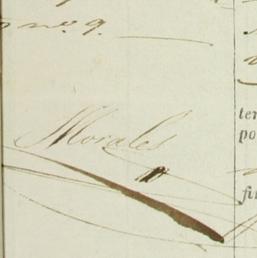 nº 9.
Morales
ter
po
fi